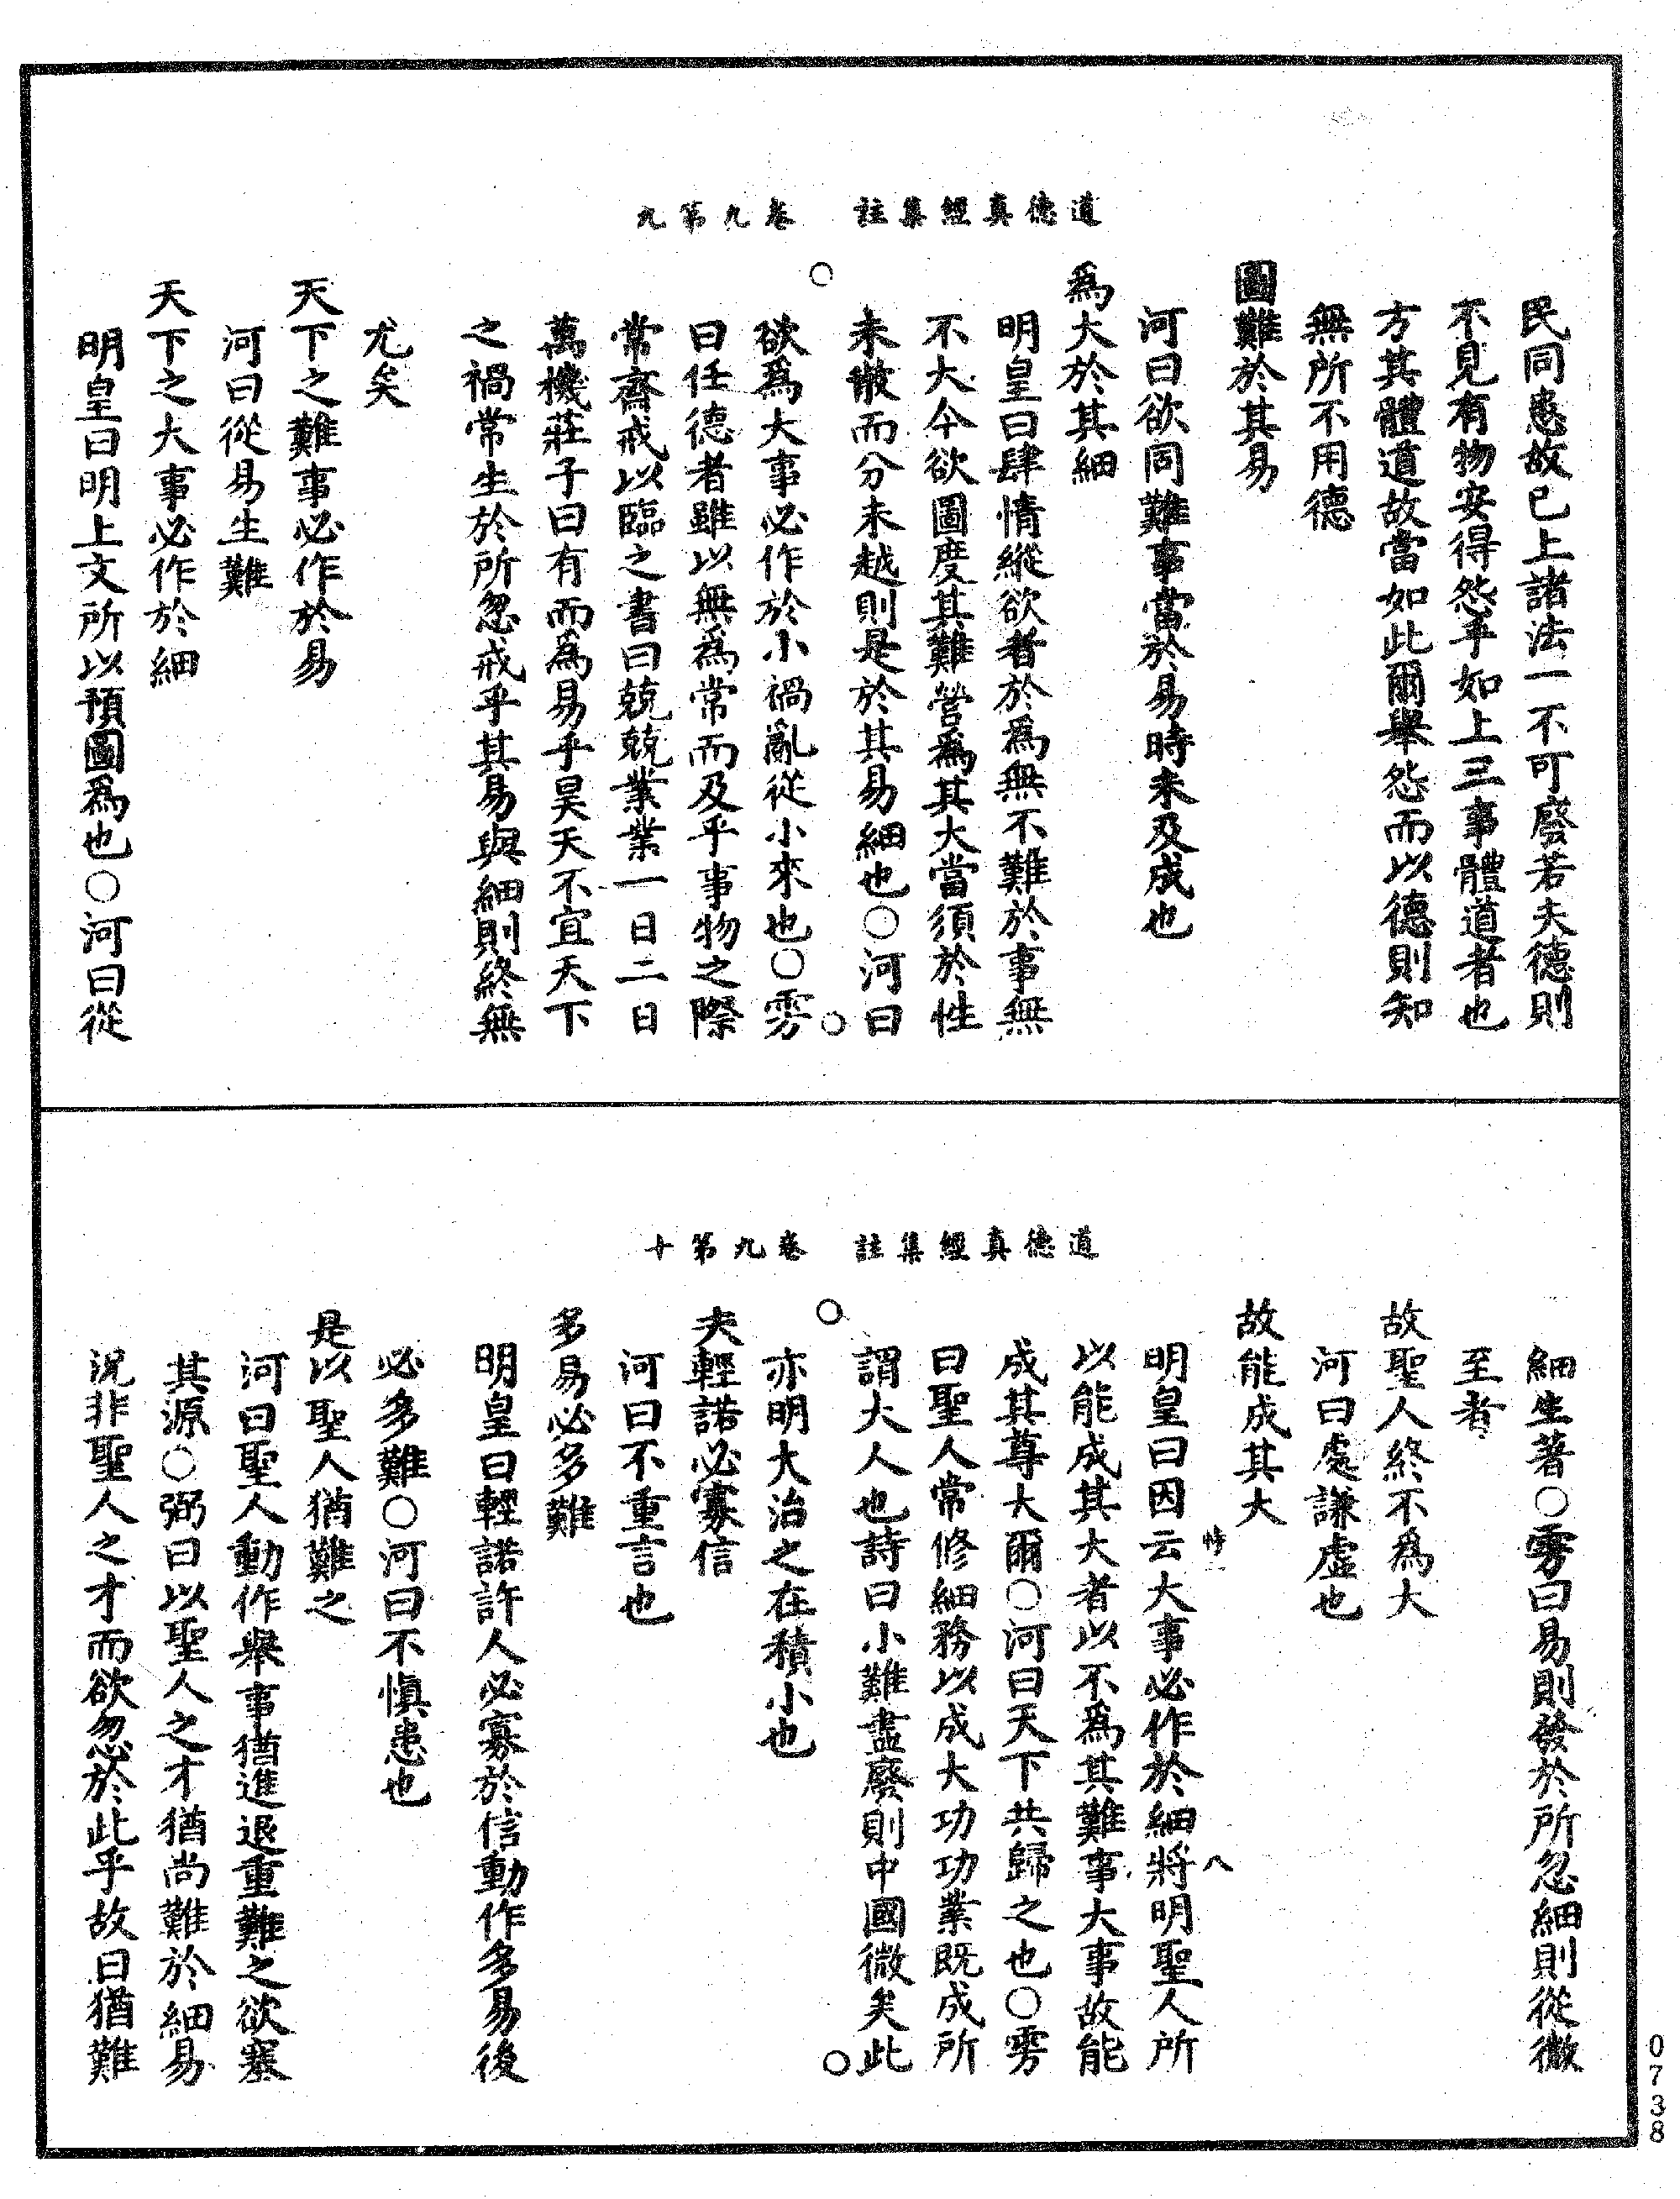 道德真經集註 卷九第九
民同患故已上諸法一不可廢若夫德則
不見有物安得怨乎如上三事體道者也
方其體道故當如此爾舉怨而以德則知
無所不用德
圖難於其易
河曰欲同難事當於易時未及成也
為大於其細
明皇曰肆情縱欲者於為無不難於事無
不大今欲圖度其難營為其大當須於性
未散而分未越則是於其易細也○河曰
欲為大事必作於小禍亂從小來也○雱
曰任德者雖以無為常而及乎事物之際
常齋戒以臨之書曰兢兢業業一日二日
萬機莊子曰有而為易乎昊天不宜天下
之禍常生於所忽戒乎其易與細則終無
尤矣
天下之難事必作於易
河曰從易生難
天下之大事必作於細
明皇曰明上文所以預圖為也○河曰從
道德真經集註 卷九第十
細生著○雱曰易則發於所忽細則從微
至者
故聖人終不為大
河曰處謙虛也
故能成其大
明皇曰因云大事必作於細將明聖人所
以能成其大者以不為其難事大事故能
成其尊大爾○河曰天下共歸之也○雱
曰聖人常修細務以成大功功業既成所
謂大人也詩曰小難盡廢則中國微矣此
亦明大治之在積小也
夫輕諾必寡信
河曰不重言也
多易必多難
明皇曰輕諾許人必寡於信動作多易後
必多難○河曰不慎患也
是以聖人猶難之
河曰聖人動作舉事猶進退重難之欲塞
其源○弼曰以聖人之才猶尚難於細易
況非聖人之才而欲忽於此乎故曰猶難
八
0738